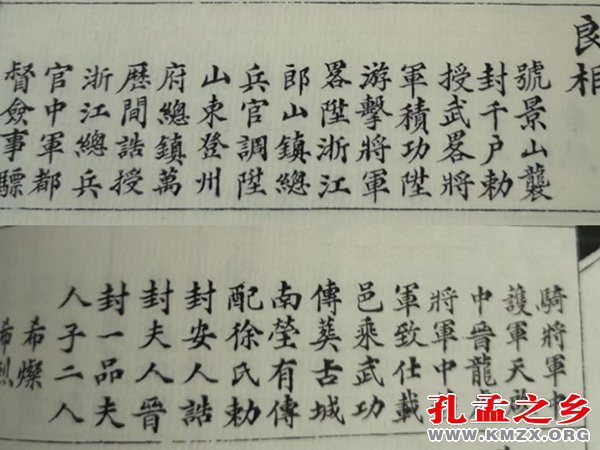 良相
號景山襲
封千户勅
授武畧將
軍積功陞
游擊將軍
畧陞浙江
郎山鎮總
兵官調陞
山東登州
府總鎮萬
歷間誥授
浙江總兵
官中軍都
督僉事驃
騎將軍中
護軍天啟
中晉龍虎
將軍中
軍致仕載
邑乘武功
傳葬古城
南塋有傳
配徐氏勅
封安人誥
封夫人晉
封一品夫
人子二人
希燦
希烈
孔孟之乡
WWW.KMZX.ORG.CN